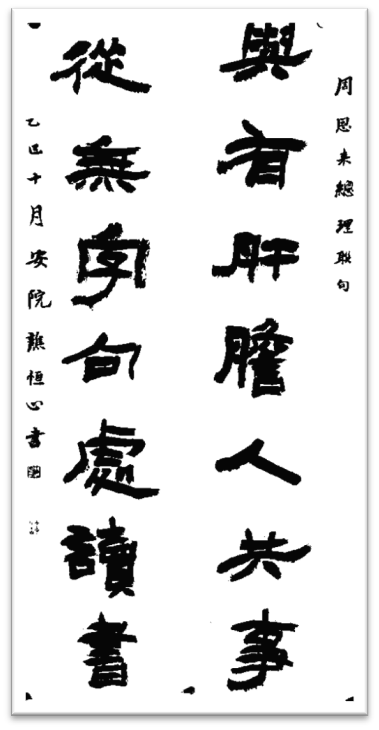 周恩来總理聯句
與有肝膽人共事
從無字句處讀書
乙巳十月安院譙恒心書